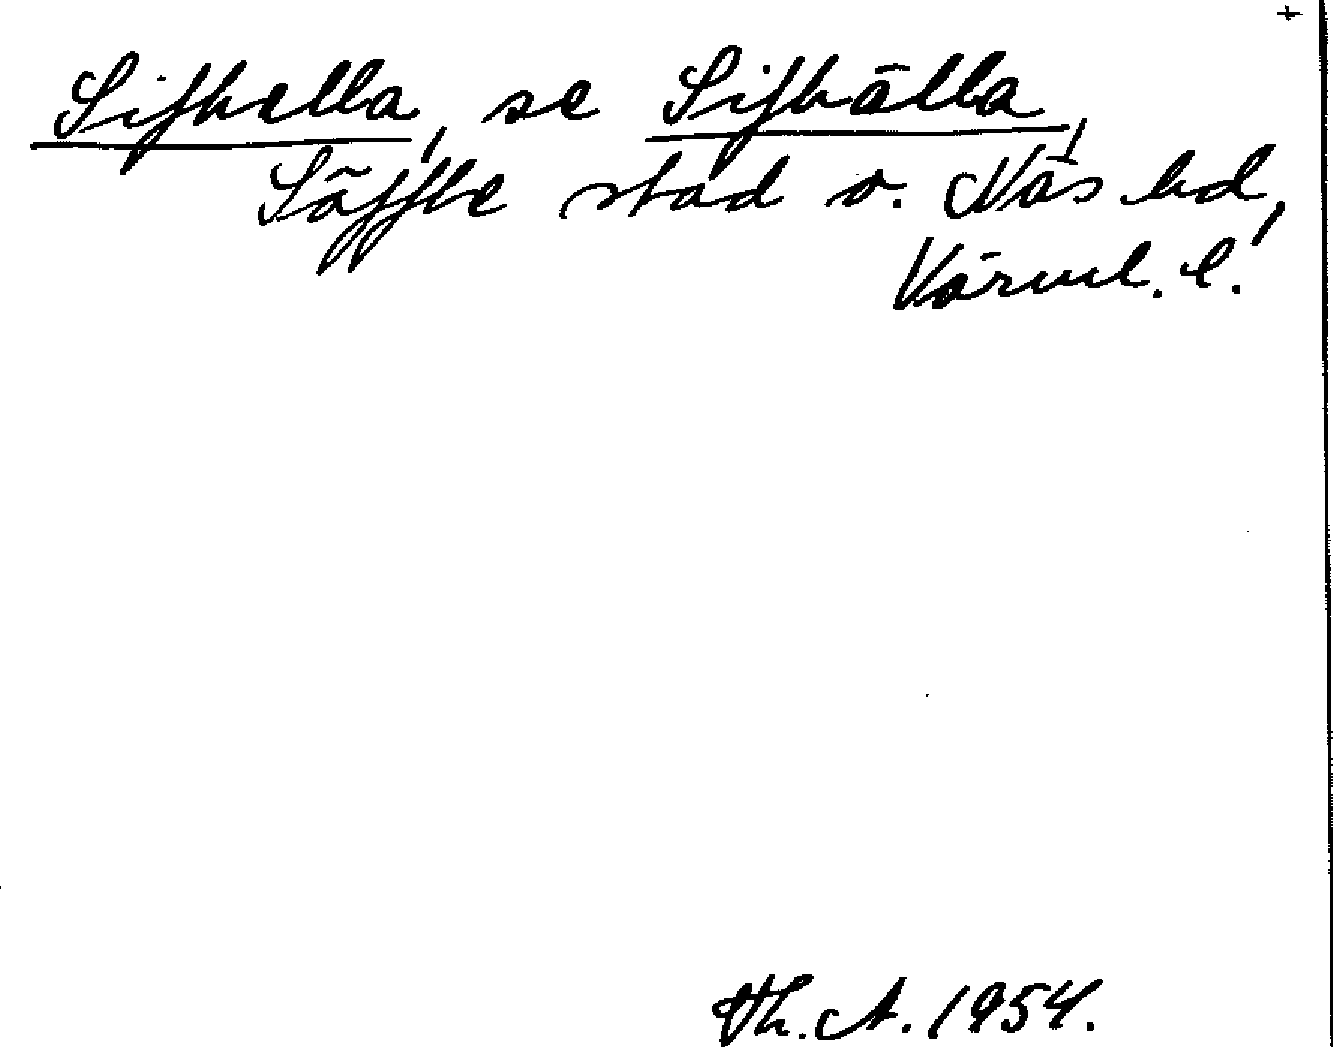 +
Sifhella, se Sifhälla,
Säffle stad o. Näs hd,
Värml. l.
Th. A. 1954.